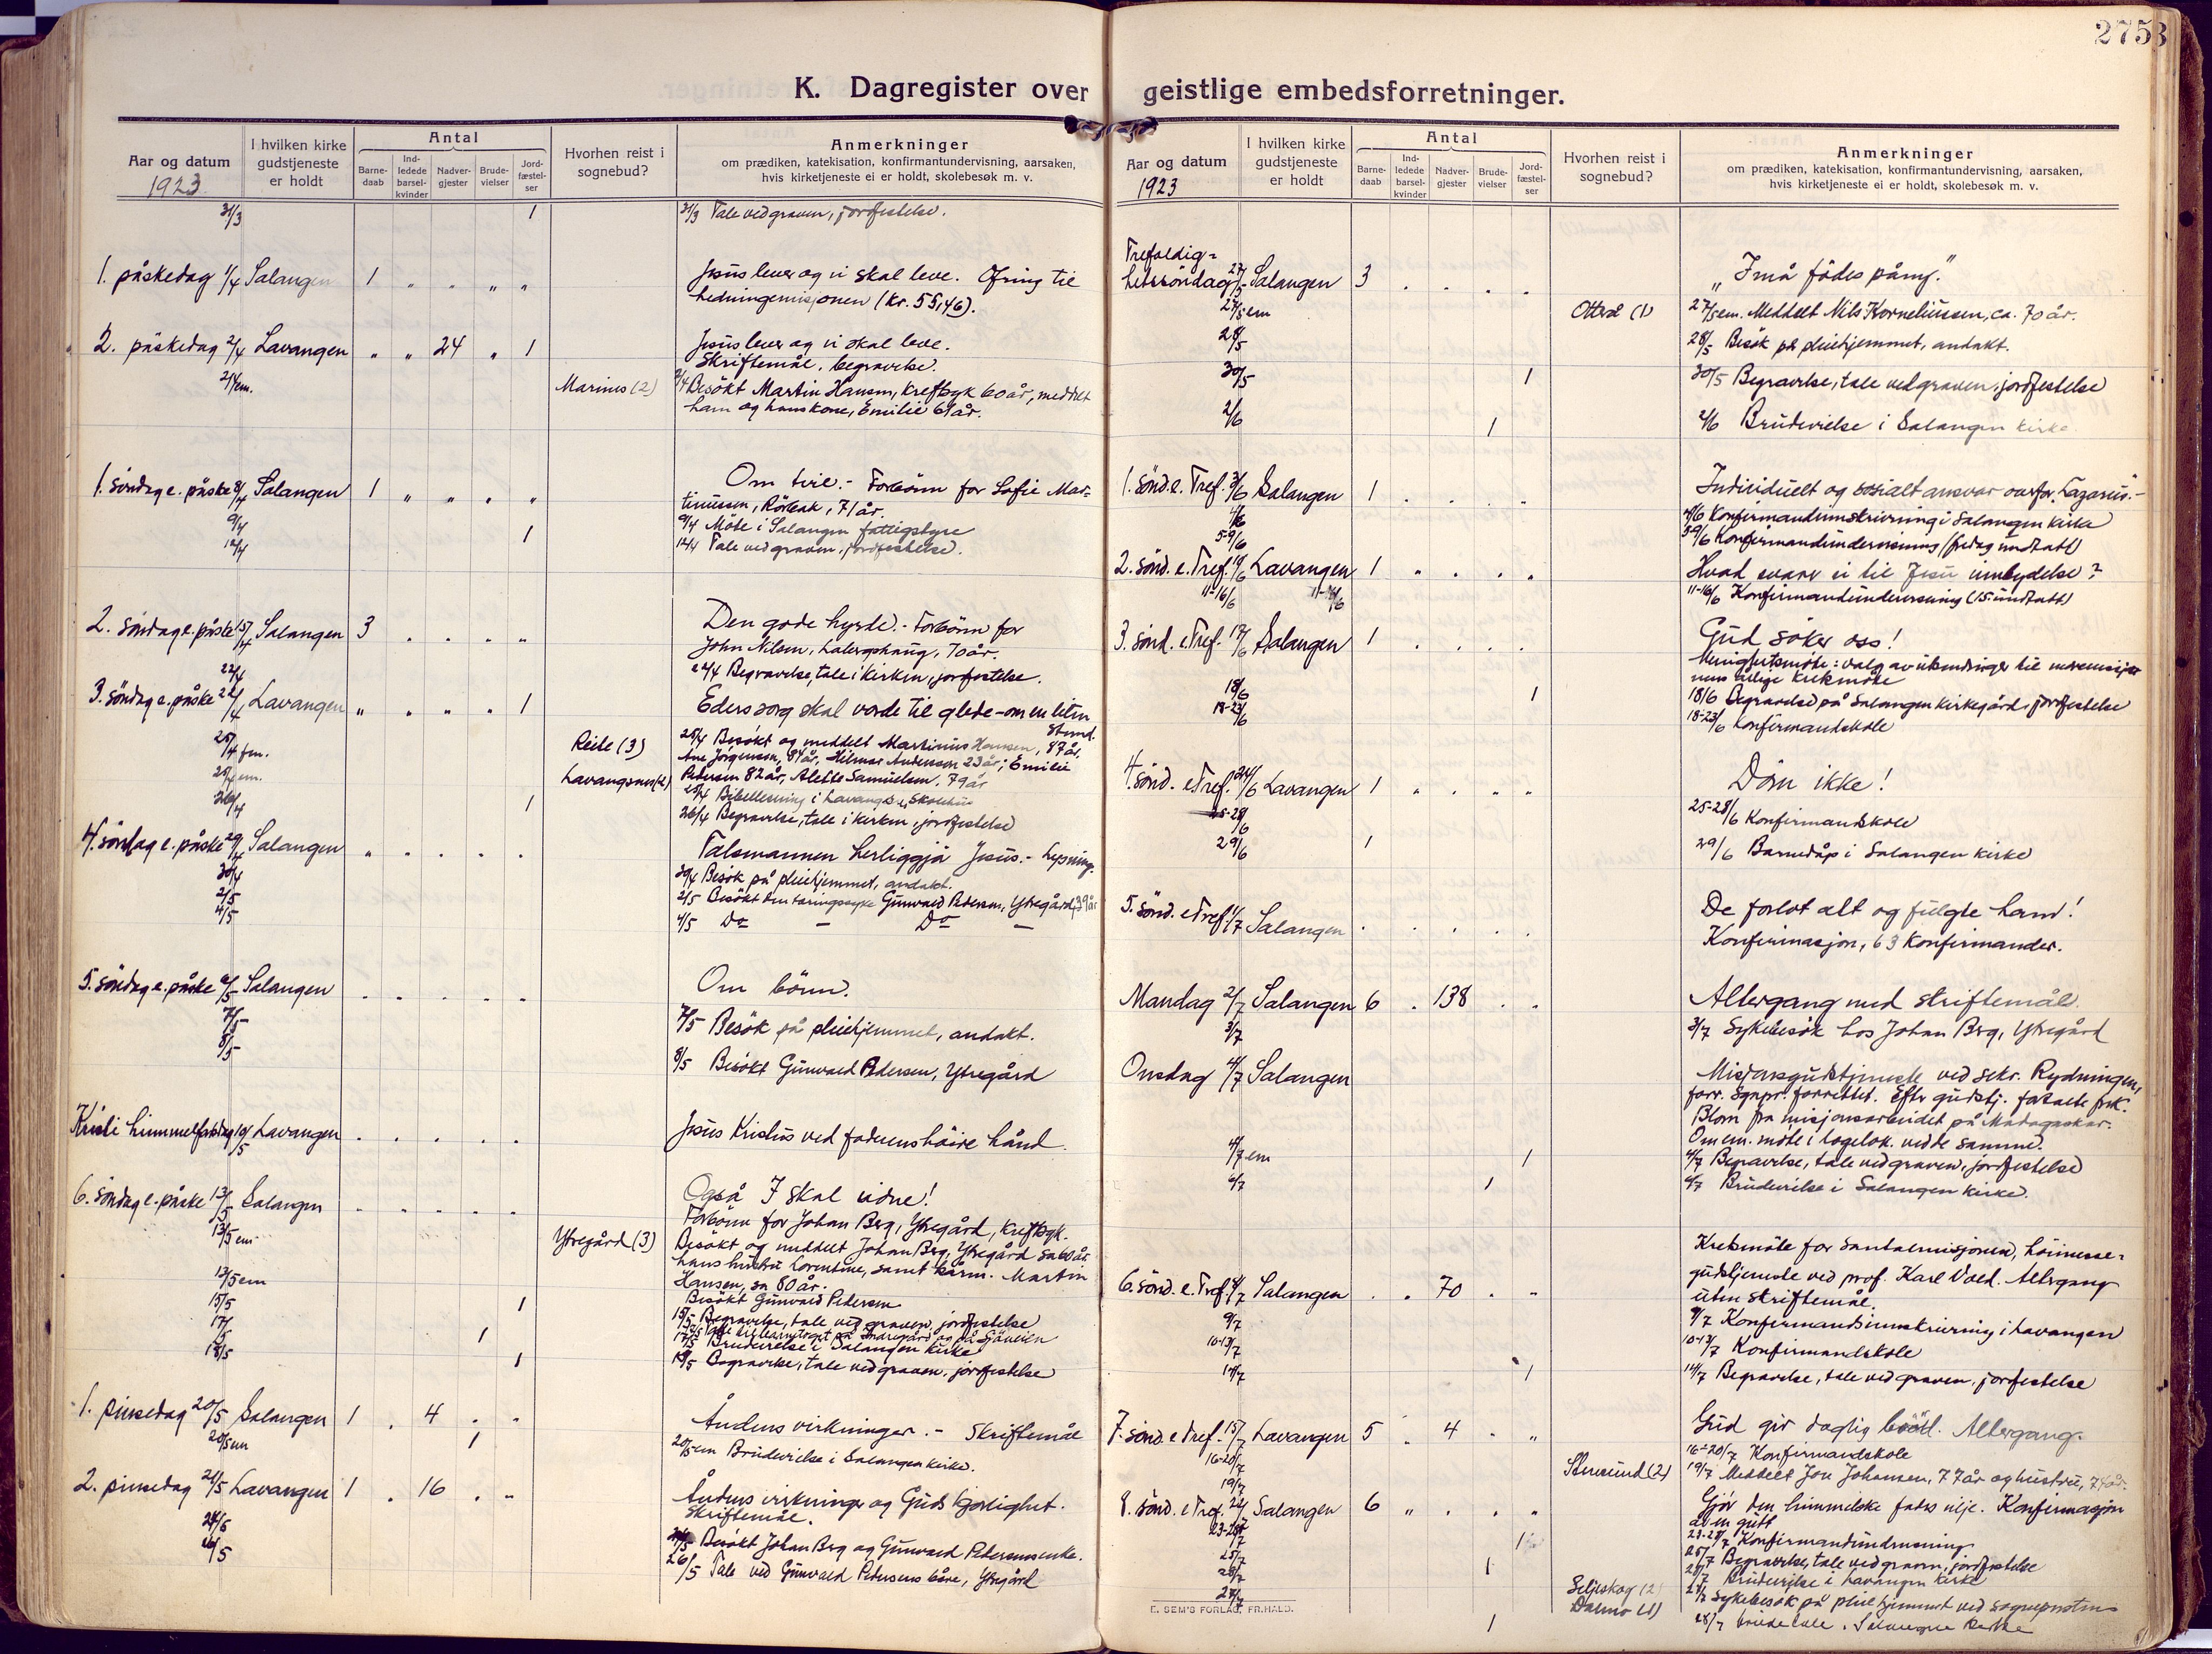 2753
K. Dagregister over geistlige embedsforretninger.
Aar og datum
1923
I hvilken kirke gudstjeneste er holdt
Antal
Barne-daab
Ind-ledede barsel-kvinder
Nadver-gjester
Brude-vielser
Jord-fæstel-ser
Hvorhen reist i sognebud?
Anmerkninger
om prædiken, katekisation, konfirmantundervisning, aarsaken,
hvis kirketjeneste ei er holdt, skolebesøk m. v.
31/3 1 31/3 Tale ved graven, jordfestelse.
1. påskedag 1/4 Salangen 1 " " " " Jesus lever og vi skal leve. Ofring til
hedningemisjonen (kr. 55,46).
2. påskedag 2/4 Lavangen " " 24 " 1 Jesus lever og vi skal leve.
Skriftemål, begravelse.
2/4 em. Marinus (2) 2/4 Besøkt Martin Hansen, kreftsyk 60 år, meddelt
ham og hans kone, Emilie 61 år.
1. søndag e. påske 8/4 Salangen 1 " " " " Om tvil. - Forbønn for Sofie Mar-
tinussen, Rørbak, 71 år.
9/4 9/4 Møte i Salangen fattigstyre
12/4 1 12/4 Tale ved graven, jordfestelse.
2. søndag e. påske 15/4 Salangen 3 . . . " Den gode hyrde. - Forbønn for
John Nilsen, 70 år.
22/4 22/4 Begravelse, tale i kirken, jordfestelse.
3. søndag e. påske 22/4 Lavangen " . " . 1 Eders sorg skal vorde til glede - om en liten
Stund.
25/4 fm. Reite (3) 25/4 Besøkt og meddelt Martinus Hansen, 87 år,
Ane Jørgensen, 84 år, Hilmar Andersen 23 år; Emilie
25/4 em. Lavangsnes (2) Pedersen 82 år, Alette Samuelsen, 79 år
25/4 Bibellesning i Skolehus
26/4 1 26/4 Begravelse, tale i kirken, jordfestelse
4. søndag e. påske 29/4 Salangen " . . . . Talsmannen herliggjø Jesus. - Lysning.
30/4 30/4 Besøk på pleiehjemmet, andakt.
2/5 2/5 Besøkt den tæringssyke Gunvald Pedersen, Ytregård, 39 år
4/5 4/5 Do - Do -
5. søndag e. påske 6/5 Salangen . . . . . Om bønn.
7/5 7/5 Besøk på pleiehjemmet, andakt.
8/5 8/5 Besøkt Gunvald Pedersen, Ytregård
Kristi himmelfartsdag 10/5 Lavangen . . . . . Jesus Kristus ved faderens høire hånd.
6. søndag e. påske 13/5 Salangen . . . . . Også I skal vidne!
Forbønn for Johan Berg, Ytregård, kreftsyk.
13/5 em. Ytregård (3) Besøkt og meddelt Johan Berg, Ytregård sa 60 år
hans hustru Lorentine, samt Martin
13/5 em Hansen, sa 80 år.
Besøkt Gunvald Pedersen
15/5 1 15/5 Begravelse, tale ved graven, jordfestelse
17/5 1 17/5 Brudevielse i Salangen kirke
18/5 1 18/5 Begravelse, tale ved graven, jordfestelse
1. pinsedag 20/5 Salangen 1 . 4 . . Åndens virkninger. - Skriftemål
20/5 em 1 20/5 em Brudevielse i Salangen kirke.
2. pinsedag 21/5 Lavangen 1 . 16 . " Åndens virkninger og Guds kjærlighet.
Skriftemål.
24/5 24/5 Besøkt Johan Berg og Gunvald Pedersens enke.
26/5 26/5 Tale ved Gunvald Pedersens båre, Ytregård
Aar og datum
1923
I hvilken kirke gudstjeneste er holdt
Antal
Barne-daab
Ind-ledede barsel-kvinder
Nadver-gjester
Brude-vielser
Jord-fæstel-ser
Hvorhen reist i sognebud?
Anmerkninger
om prædiken, katekisation, konfirmantundervisning, aarsaken,
hvis kirketjeneste ei er holdt, skolebesøk m. v.
Trefoldig-
hetssøndag 27/5 Salangen 3 . . . . "I må fødes påny."
27/5 em Otterå (1) 27/5 em. Meddelt Nils Korneliussen, ca. 70 år.
28/5 28/5 Besøk på pleiehjemmet, andakt.
30/5 1 30/5 Begravelse, tale ved graven, jordfestelse
2/6 1 2/6 Brudevielse i Salangen kirke
1. sønd. e. Tref. 3/6 Salangen 1 . . . " Individuelt og sosialt ansvar overfor "Lazarus". -
4/6 4/6 Konfirmandinnskrivning i Salangen kirke
5-9/6 5-9/6 Konfirmandundervisning (fredag undtatt)
2. sønd. e. Tref. 10/6 Lavangen 1 " . . " Hvad svarer vi til Jesu innbydelse?
11-16/6 11-16/6 11-16/6 Konfirmandundervisning (15 undtatt)
3. sønd. e Tref. 17/6 Salangen 1 . . . . Gud søker oss!
Menighetsmøte: valg av utsendinger til
nens årlige kretsmøte
18/6 1 18/6 Begravelse på Salangen kirkegård, jordfestelse
18-23/6 18-23/6 Konfirmandskole
4. sønd. e Tref. 24/6 Lavangen 1 " . " " Døm ikke!
25-28/6 25-28/6 Konfirmandskole
29/6 1 29/6 Barnedåp i Salangen kirke
5. sønd. e Tref. 1/7 Salangen . . . . . De forlot alt og fulgte ham!
Konfirmasjon, 63 konfirmander.
Mandag 2/7 Salangen 6 . 138 . . Altergang med skriftemål.
3/7 3/7 Sykebesøk hos Johan Berg, Ytregård
Onsdag 4/7 Salangen Misjonsgudstjeneste ved sekr. Rydningen,
forr. Sgnpr. forrettet. Efter gudstj. fortalte frk.
Blom fra misjonsarbeidet på Madagaskar.
Om em. møte i logelok. ved de samme.
4/7 em 1 4/7 Begravelse, tale ved graven, jordfestelse
6/7 1 6/7 Brudevielse i Salangen kirke.
Kretsmøte for Santalmisjonen, høimesse-
gudstjeneste ved prof. Karl Vold. Altergang
6. sønd. e. Tref. 8/7 Salangen . . 70 . " uten skriftemål.
9/7 9/7 Konfirmandinnskrivning i Lavangen
10-13/7 10-13/7 Konfirmandskole
14/7 1 14/7 Begravelse, tale ved graven, jordfestelse
7. sønd. e Tref. 15/7 Lavangen 5 . 4 . " Gud gir daglig brød. Altergang.
16-20/7 16-20/7 Konfirmandskole
19/7 (2) 19/7 Meddelt Jon Johansen, 77 år og hustru, 74 år.
8. sønd. e Tref. 22/7 Salangen 6 " . . . Gjør den himmelske faders vilje. Konfirmasjon
av en gutt
23-28/7 23-28/7 Konfirmandundervisning
25/7 1 25/7 Begravelse, tale ved graven, jordfestelse
28/7 1 Brudevielse i Lavangen kirke
27/7 Seljeskog (2) Sykebesøk på pleiehjemmet ved sogneprosten
Dalmo (1)
1 28/7 Salangen kirke
E. SEM'S FORLAG, FR.HALD.